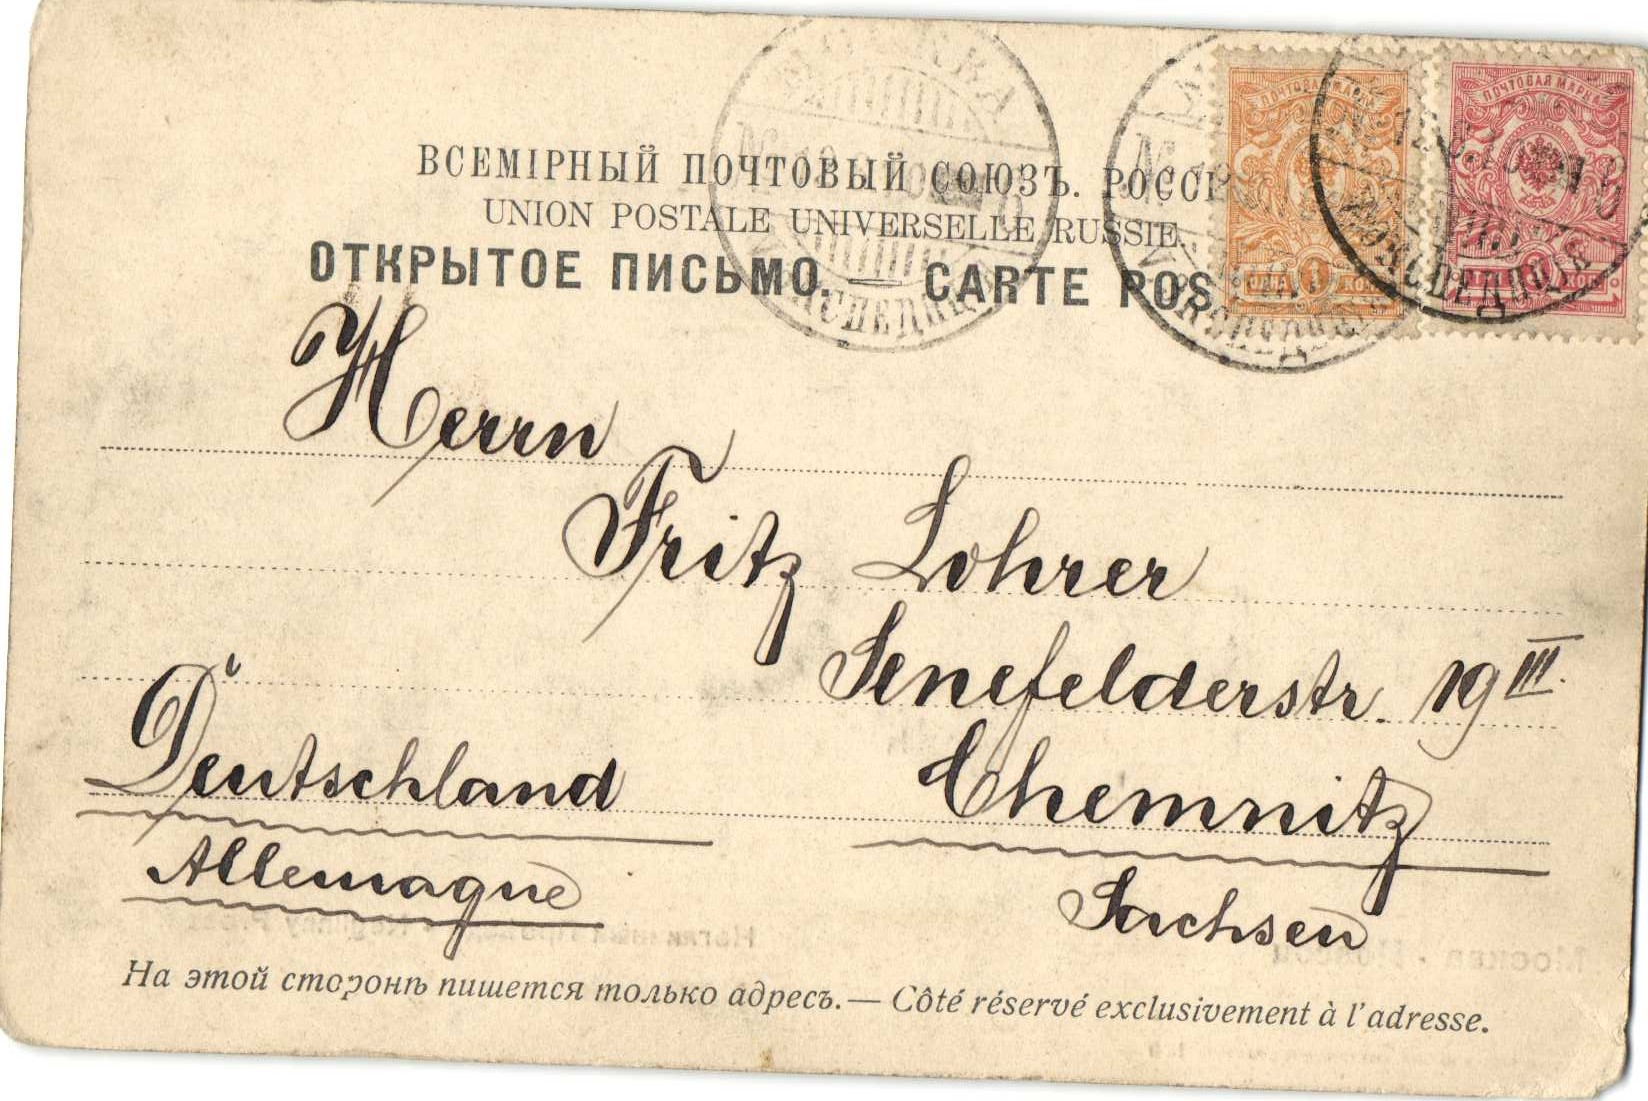 ВСЕМІРНЫЙ ПОЧТОВЫЙ СОЮЗЪ. РОССІ
UNION POSTALE UNIVERSELLE RUSSIE.
ОТКРЫТОЕ ПИСЬМО. — CARTE POS
ПОЧТОВАЯ МАРКА
ПОЧТОВАЯ МАРКА
Herrn
Fritz Lohrer
Senefelderstr. 19 III.
Deutschland
Chemnitz
Allemagne
Sachsen
На этой сторонѣ пишется только адресъ. — Côté réservé exclusivement à l'adresse.